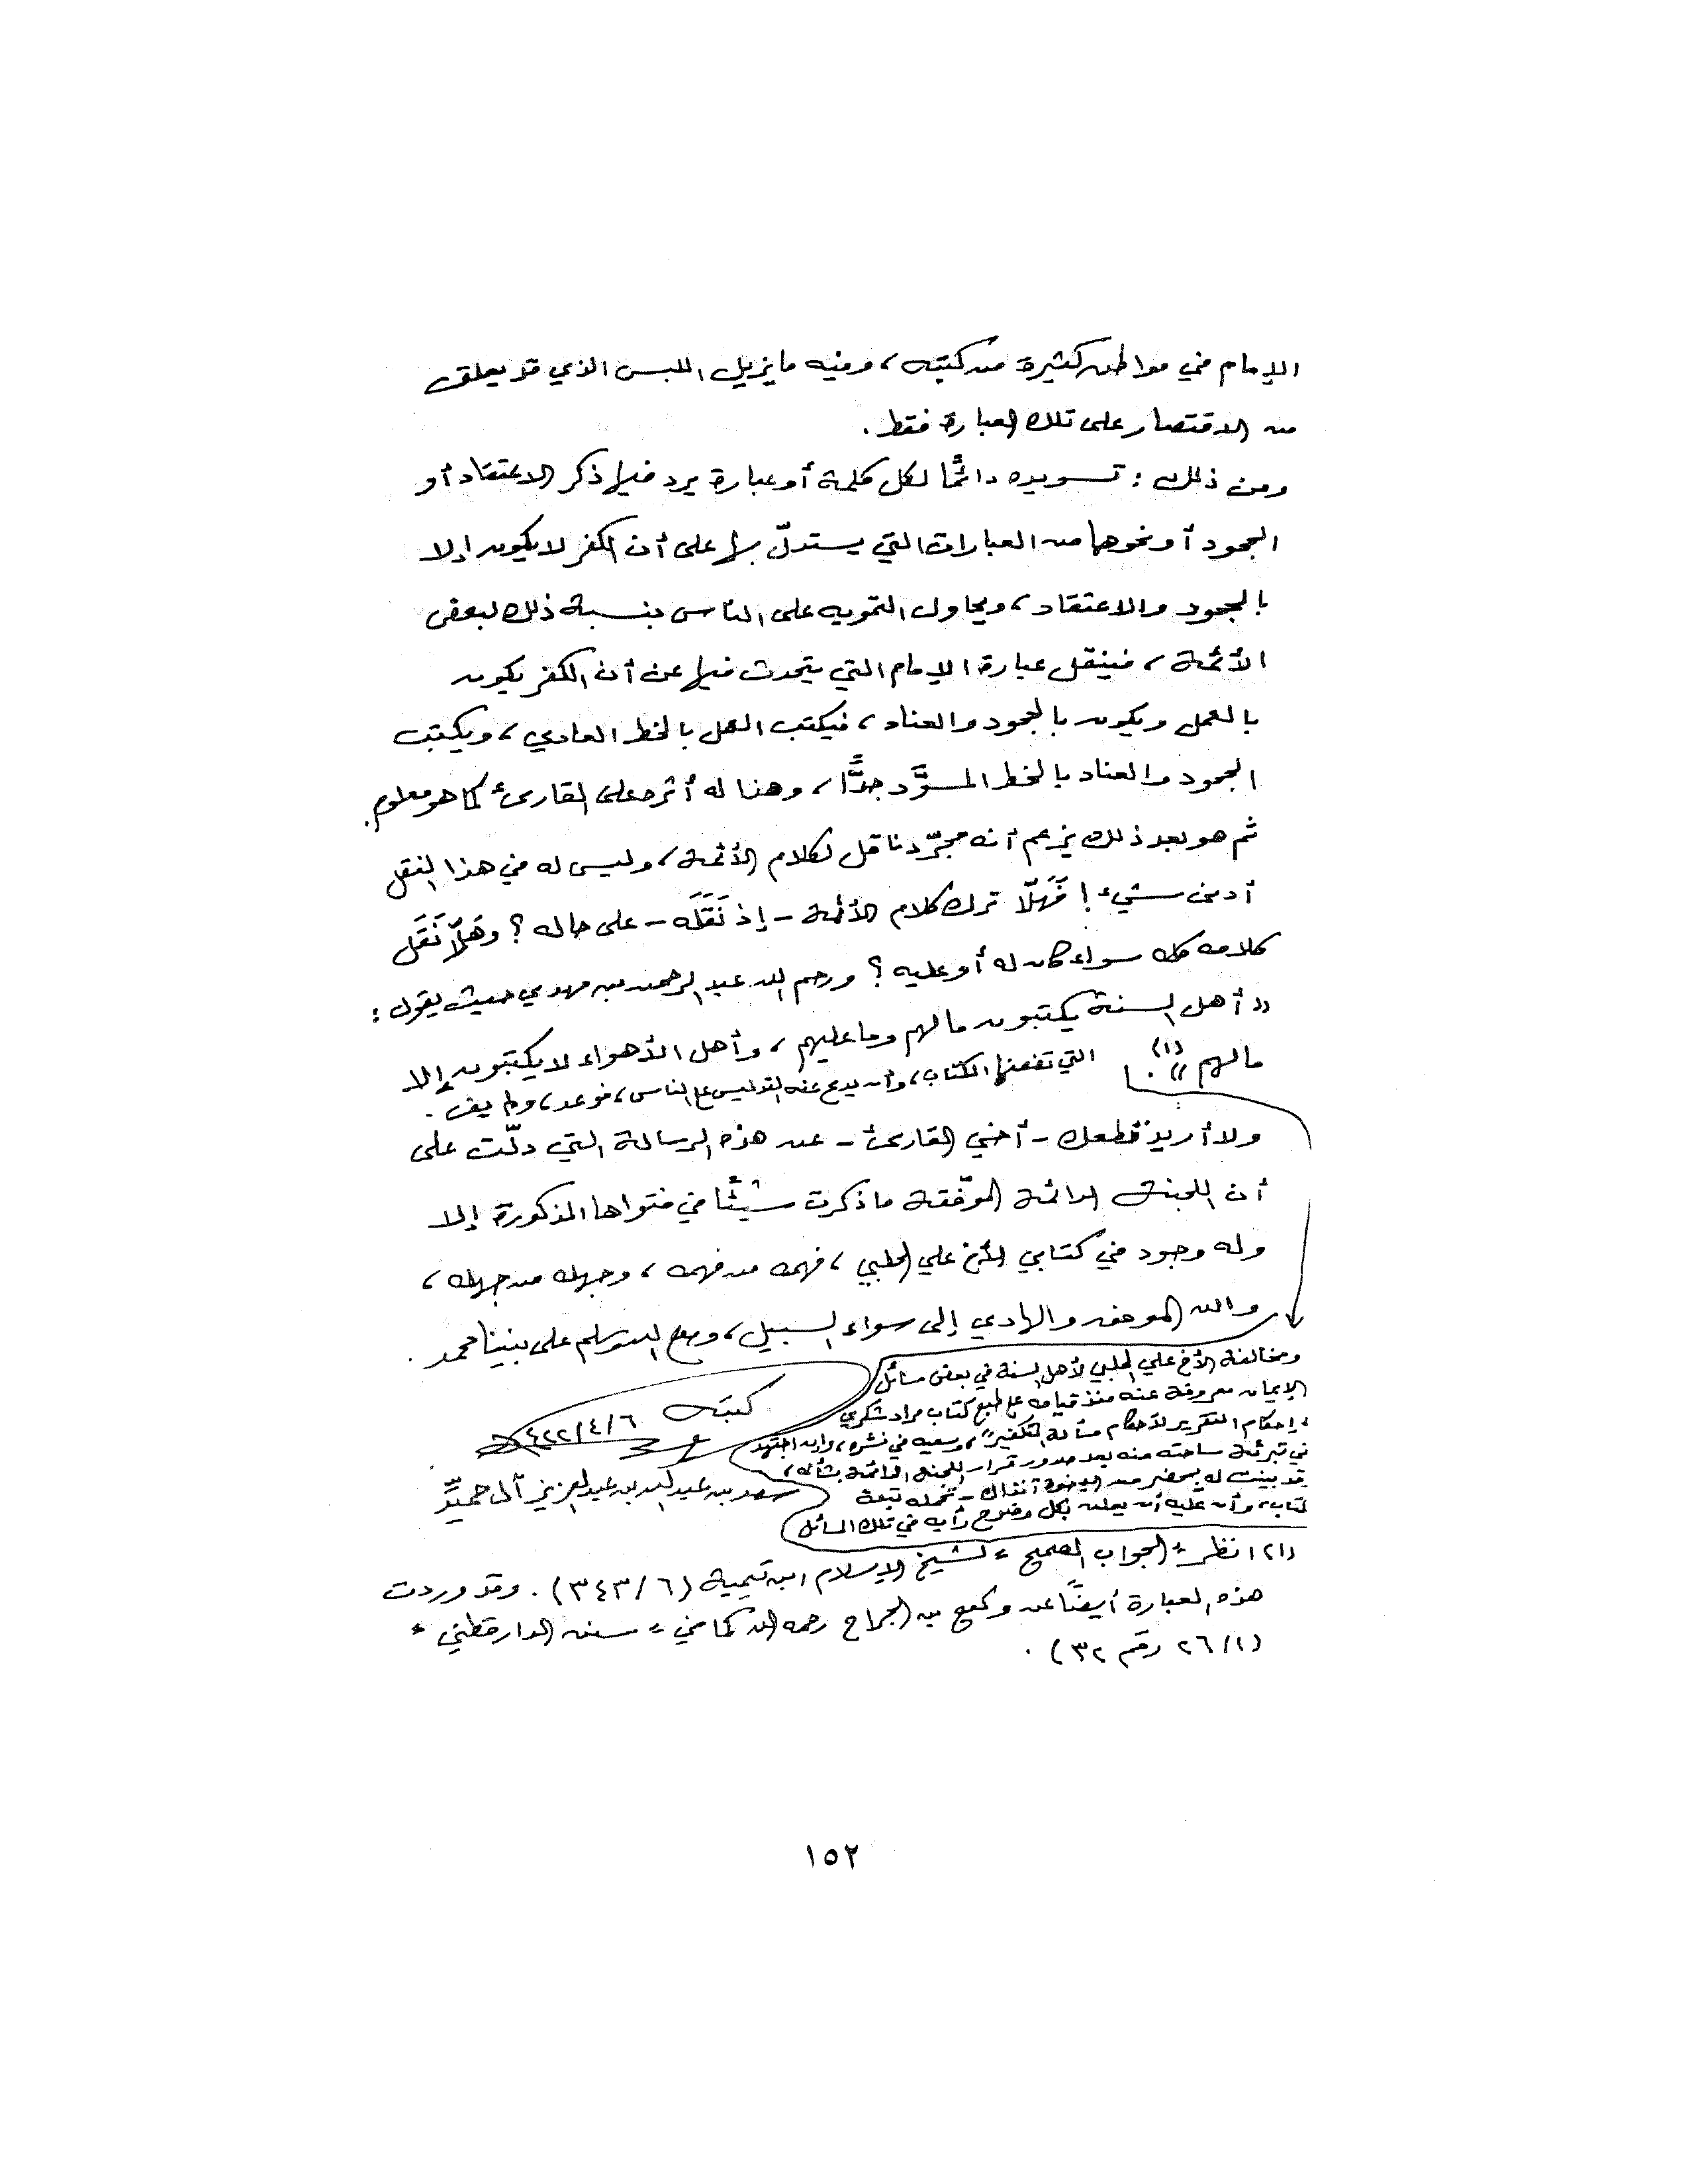 الإمام في مواطن كثيرة من كتبه، وفيه ما يزيل اللبس الذي قد يعلق
من الاقتصار على تلك العبارة فقط.
ومن ذلك: تسويده دائمًا لكل كلمة أو عبارة يرد فيها ذكر الاعتقاد أو
الجحود أو نحوهما من العبارات التي يستدلّ بها على أن الكفر لا يكون إلا
بالجحود والاعتقاد، ويحاول التمويه على الناس بنسبة ذلك لبعض
الأئمة، فينقل عبارة الإمام التي يتحدث فيها عن أن الكفر يكون
بالعمل ويكون بالجحود والعناد، فيكتب العمل بالخط العادي، ويكتب
الجحود والعناد بالخط المسوَّد جدًّا، وهذا له أثره على القارئ كما هو معلوم.
ثم هو بعد ذلك يزعم أنه مجرّد ناقل لكلام الأئمة، وليس له في هذا النقل
أدنى شيء! فَهَلّا ترك كلام الأئمة - إذ نَقَلَه - على حاله؟ وهَلّا نَقَل
كلامه كله سواء كان له أو عليه؟ ورحم الله عبد الرحمن بن مهدي حيث يقول:
«أهل السنة يكتبون ما لهم وما عليهم، وأهل الأهواء لا يكتبون إلا
ما لهم»(١).
التي تضمنها الكتاب، وأن يدع عنه التدليس على الناس، فوعد، ولم يف.
ولا أريد قطعك - أخي القارئ - عن هذه الرسالة التي دلّت على
أن اللجنة الدائمة الموفّقة ما ذكرت شيئًا في فتواها المذكورة إلا
وله وجود في كتابي الأخ علي الحلبي، فهمه من فهمه، وجهله من جهله،
والله الموفق والهادي إلى سواء السبيل، وصلى الله وسلم على نبينا محمد.
ومخالفة الأخ علي الحلبي لأهل السنة في بعض مسائل
الإيمان معروفة عنه منذ قيامه على طبع كتاب مراد شكري
"إحكام التقرير لأحكام مسألة التكفير"، وسعيه في نشره، وإن اجتهد
في تبرئة ساحته منه بعد صدور قرار اللجنة الدائمة بشأنه،
قد بينت له بمحضر من الإخوة آنذاك - تحمله تبعة
كتاب، وأن عليه أن يعلن بكل وضوح رأيه في تلك المسائل
كتبه
١٤٢٢/٤/٦هـ
سعد بن عبد الله بن عبد العزيز آل حميّد
(١) انظر "الجواب الصحيح" لشيخ الإسلام ابن تيمية (٦/ ٣٤٣). وقد وردت
هذه العبارة أيضًا عن وكيع بن الجراح رحمه الله كما في "سنن الدارقطني"
(١/ ٢٦ رقم ٣٢).
١٥٢